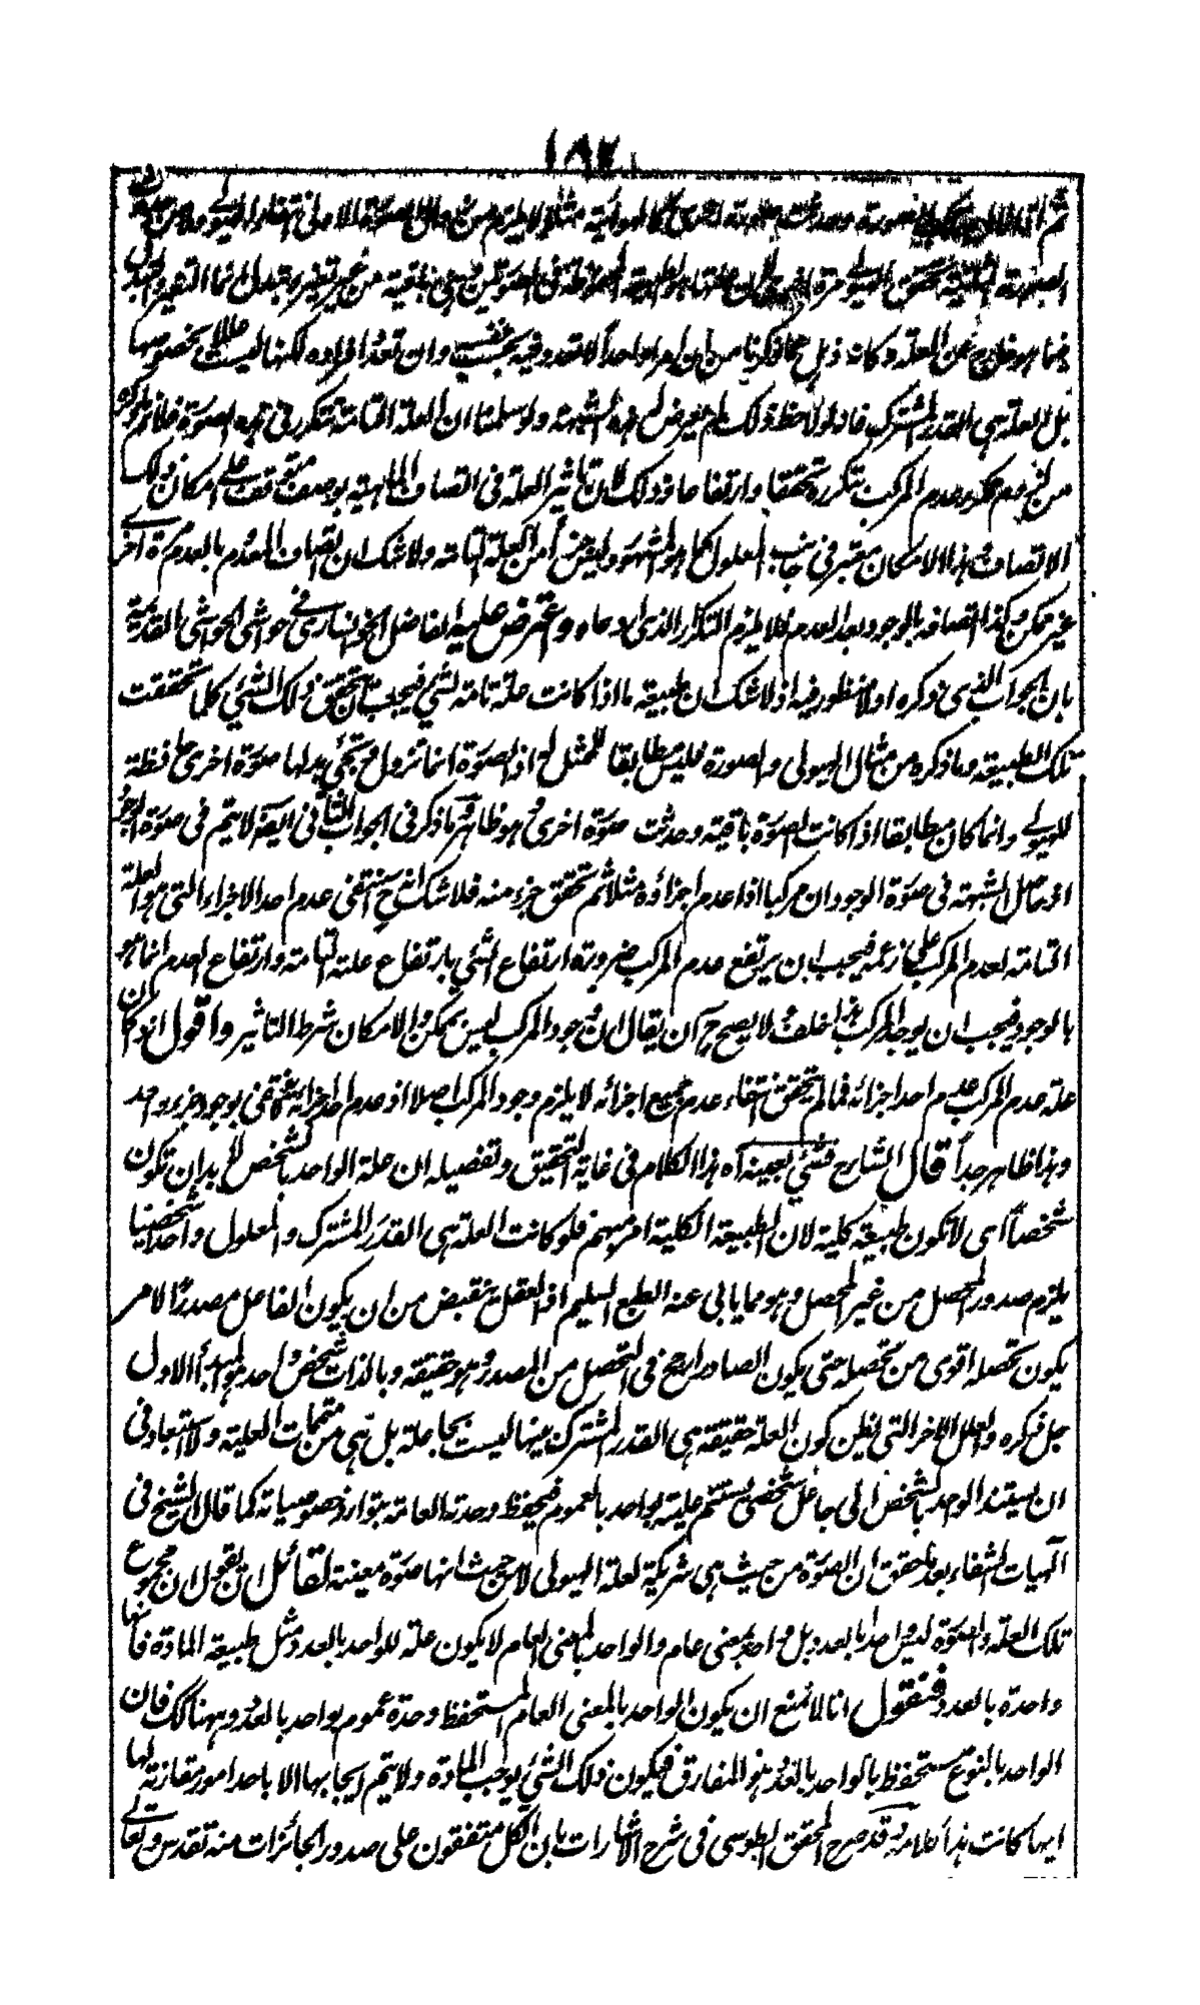 ثم اذا زال صورة وحدثت صورة اخرى كالهوائية مثلا لا يلزم من زوال الصورة الاولى انتفاء الهيولى ولا من
الصورة الثانية تحقق الهيولى مرة اخرى لان علتها هو الطبيعة المحفوظة فى الصورتين وهى باقية من غير تغير وتبدل انما التغير والتبدل
فيما هو خارج عن العلة وكانه ذهل عما ذكرنا من ان امرا واحدا لا تعدد فيه بحسب نفسه وان تعدد افراده لكنها ليست عللا بخصوصها
بل العلة هى القدر المشترك فانه لو لاحظ ذلك لم يعرض له هذه الشبهة ولو سلمنا ان العلة التامة تتكرر فى هذه الصورة فلا نم
من تكرر عدم المركب تكرره تحققا وارتفاعا وذلك لان تاثير العلة فى اتصاف الماهية بوصف متوقف على امكان ذلك
الاتصاف وهذا الامكان معتبر فى جانب المعلول كما هو المشهور وليس جزأ من العلة التامة ولا شك ان اتصاف المعدوم بالعدم مرة اخرى
غير ممكن وكذا اتصافه بالوجود بعد العدم فلا يلزم التكرار الذى ادعاه واعترض عليه الفاضل الخوانسارى فى حواشى الحواشى القديمة
بان الجواب الذى ذكره اولا منظور فيه اذ لا شك ان طبيعة ما اذا كانت علة تامة لشئ فيجب ان تحقق ذلك الشئ كلما تحققت
تلك الطبيعة وما ذكره من مثال الهيولى والصورة فليس مطابقا للممثل له اذ الصورة انما تزول وتجئ بدلها صورة اخرى حافظة
للهيولى وانما كان مطابقا اذا كانت الصورة باقية وحدثت صورة اخرى وهو ظاهر وما ذكر فى الجواب الثانى ايضا لا يتم فى صورة الوجود
اذ حاصل الشبهة فى صورة الوجود ان مركبا اذا عدم اجزاؤه مثلا ثم تحقق جزء منه فلا شك انه ح ينتفى عدم احد الاجزاء التى هو العلة
التامة لعدم المركب على زعمه فيجب ان يرتفع عدم المركب ضرورة ارتفاع الشئ بارتفاع علته التامة وارتفاع العدم انما هو
بالوجود فيجب ان يوجد المركب هذا خلف ولا يصح ح ان يقال ان وجود المركب ليس بممكن والامكان شرط التاثير واقول ان كان
علة عدم المركب عدم احد اجزائه فما لم يتحقق انتفاء عدم جميع اجزائه لا يلزم وجود المركب اصلا اذ عدم احد اجزائه لا ينتفى بوجود جزء واحد
وهذا ظاهر جدا قال الشارح فشئ بعينه اه هذا الكلام فى غاية التحقيق وتفصيله ان علة الواحد بالشخص لا بد ان تكون
شخصا اى لا تكون طبيعة كلية لان الطبيعة الكلية امر مبهم فلو كانت العلة هى القدر المشترك والمعلول واحدا شخصيا
يلزم صدور المحصل من غير المحصل وهو مما يابى عنه الطبع السليم اذ العقل ينقبض من ان يكون الفاعل مصدرا لامر
يكون تحصله اقوى من تحصله حتى يكون الصادر ارجح فى التحصل من المصدر وهو حقيقة وبالذات شخص واحد هو المبدأ الاول
جل ذكره والعلل الاخر التى يظن كون العلة حقيقة هى القدر المشترك بينها ليست بجاعلة بل هى من متممات العلية ولا استبعاد فى
ان يستند الواحد بالشخص الى جاعل شخصى يستتم علية بواحد بالعموم فيحفظ وحدته العامة بتوارد خصوصياته كما قال الشيخ فى
الهيات الشفاء بعد ما حقق ان الصورة من حيث هى شريكة لعلة الهيولى لا من حيث انها صورة معينة لقائل ان يقول ان مجموع
تلك العلة والصورة ليس واحدا بالعدد بل واحد بمعنى عام والواحد بالمعنى العام لا يكون علة للواحد بالعدد ومثل طبيعة المادة فانها
واحدة بالعدد فنقول انا لا نمنع ان يكون الواحد بالمعنى العام المستحفظ وحدة عمومه بواحد بالعدد وههنا كك فان
الواحد بالنوع مستحفظ بالواحد بالعدد هو المفارق فيكون ذلك الشئ يوجب المادة ولا يتم ايجابها الا باحد امور مقارنة لها
ايها كانت هذا كلامه وقد صرح المحقق الطوسى فى شرح الاشارات بان الكل متفقون على صدور الجائزات منه تقدس وتعالى